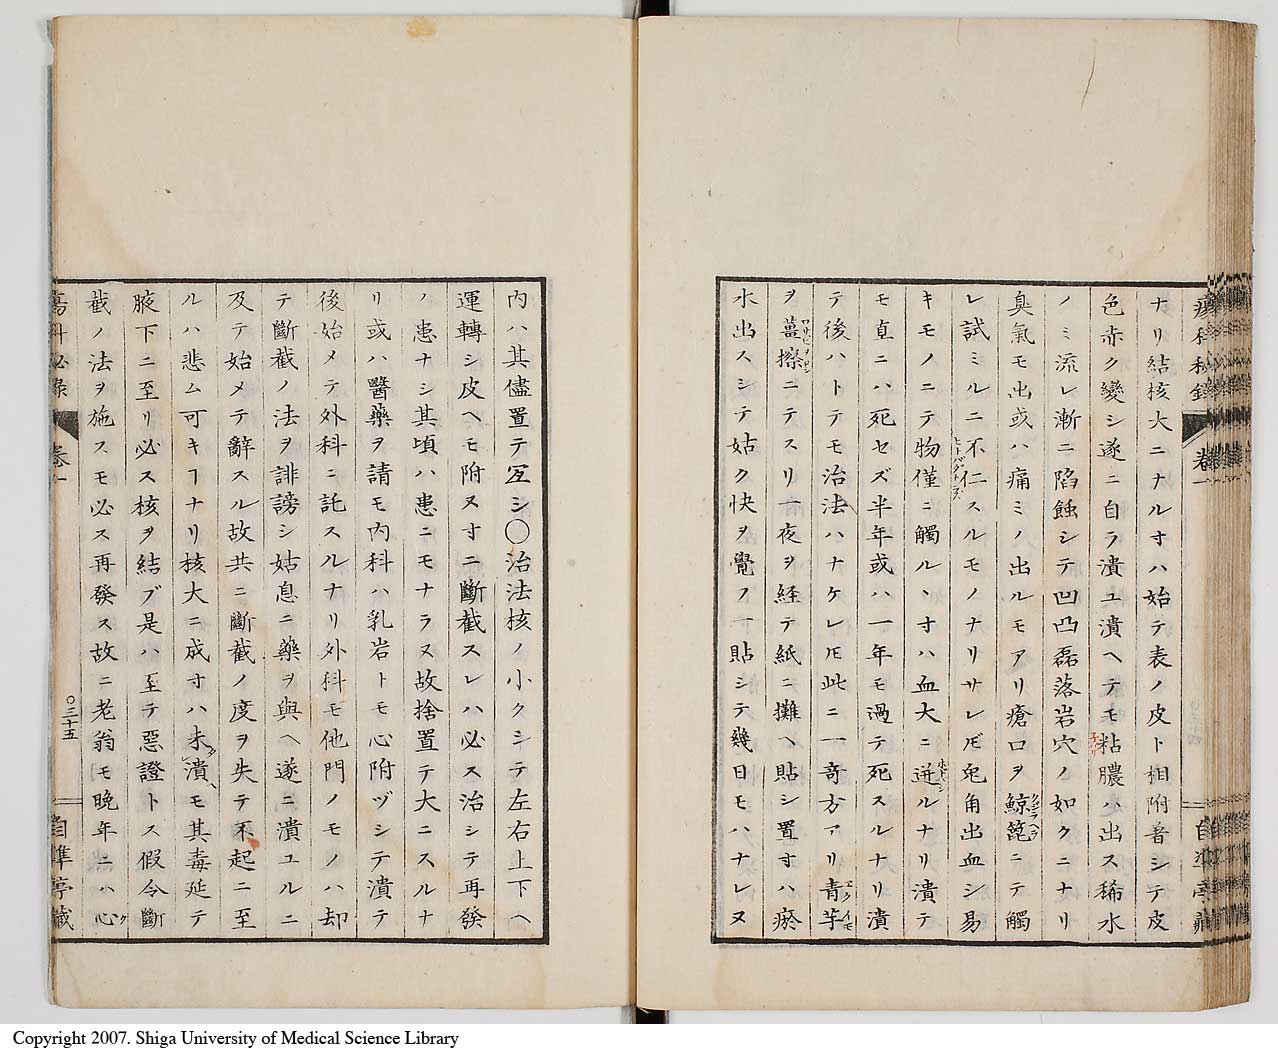 瘍科秘錄 卷一
自準亭藏
ナリ結核大ニナルヿハ始テ表ノ皮ト相附着シテ皮
色赤ク變シ遂ニ自ラ潰ユ潰ヘテモ粘膿ハ出ス稀水
ノミ流レ漸ニ陷蝕シテ凹凸磊落岩穴ノ如クニナリ
臭氣モ出或ハ痛ミノ出ルモアリ瘡口ヲ鯨箆ニテ觸
レ試ミルニ不仁スルモノナリサレ𪜈兎角出血シ易
キモノニテ物僅ニ觸ルヽ寸ハ血大ニ迸ルナリ潰テ
モ直ニハ死セズ半年或ハ一年モ過テ死スルナリ潰
テ後ハトテモ治法ハナケレ𪜈此ニ一奇方アリ青芋
ヲ薑擦ニテスリ一夜ヲ経テ紙ニ攤ヘ貼シ置寸ハ瘀
水出スシテ姑ク快ヲ覺フ一貼シテ幾日モハナレヌ
内ハ其儘置テ冝シ〇治法核ノ小クシテ左右上下ヘ
運轉シ皮ヘモ附ヌ寸ニ斷截スレハ必ス治シテ再發
ノ患ナシ其頃ハ患ニモナラヌ故捨置テ大ニスルナ
リ或ハ醫藥ヲ請モ内科ハ乳岩トモ心附ヅシテ潰テ
後始メテ外科ニ託スルナリ外科モ他門ノモノハ却
テ斷截ノ法ヲ誹謗シ姑息ニ藥ヲ與ヘ遂ニ潰ユルニ
及テ始メテ辭スル故共ニ斷截ノ度ヲ失テ不起ニ至
ルハ悲ム可キヿナリ核大ニ成寸ハ未潰モ其毒延テ
腋下ニ至リ必ス核ヲ結ブ是ハ至テ惡證トス假令斷
截ノ法ヲ施スモ必ス再發ス故ニ老翁モ晩年ニハ心
瘍科秘錄 卷一
〇三十五
自準亭藏
Copyright 2007. Shiga University of Medical Science Library